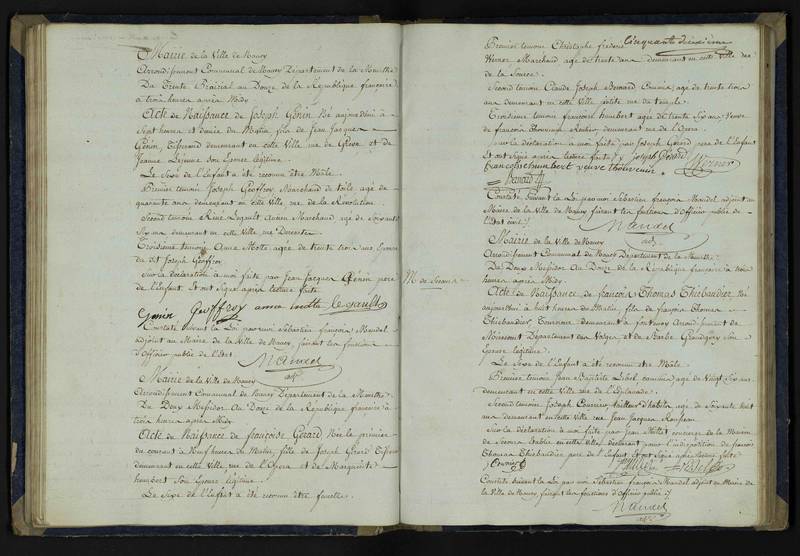 Mairie de la Ville de Nancy
Arrondissement Communal de Nancy Département de la Meurthe
Du Trente Prairial an Douze de la République française
à trois heures après Midy
Acte de Naissance de Joseph Génin Né aujourdhui à
Sept heures et demie du Matin fils de Jean Jacques
Génin, Tisserand demeurant en cette Ville, rue de Grève et de
Jeanne Lejeune son Epouse légitime
Le Sexe de l'Enfant a été reconnu être Mâle.
Premier témoin Joseph Geoffroy, Marchand de toile, agé de
quarante ans demeurant en cette Ville rue de la Révolution.
Second temoin René Legault, Ancien Marchand agé de Soixante
Six ans demeurant en cette Ville, rue
Troisieme temoin Anne Motte agée de trente trois ans Epouse
du dit Joseph Geoffroy
Sur la déclaration à moi faite par Jean Jacques Génin pere
de l'Enfant. Et ont Signé après lecture faite
Genin Geoffroy anne motte legault
Constaté Suivant la Loi par moi Sébastien françois Mandel
adjoint au Maire de la Ville de Nancy faisant les fonctions
d'Officier public de l'Etat.
Mandel
adj.
Mairie de la Ville de Nancy
Arrondissement Communal de Nancy Département de la Meurthe
Du Deux Messidor An Douze de la République française à
trois heures après Midy
Acte de Naissance de françoise Gérard Née le premier
du courant à Neuf heures du Matin, fille de Joseph Gérard
demeurant en cette Ville rue de l'Opera et de Marguerite
humbert Son Epouse légitime
Le Sexe de l'Enfant a été reconnu être femelle.
Cinquante deuxieme
Premier temoin Christophe frédéric
Werner Marchand agé de trente deux ans demeurant en cette Ville rue
de la Source.
Second temoin Claude Joseph Bernard agé de trente trois
ans demeurant en cette Ville rue du temple
Troisieme temoin francoise humbert agée de trente Six ans Veuve
de françois Thouvenin Rentier, demeurant rue de l'Opera
Sur la déclaration à moi faite par Joseph Gérard pere de l'Enfant
Et ont Signé après lecture faite joseph Gérard
francoise humbert veuve thouvenin Werner
Bernard
Constaté Suivant la Loi par moi Sébastien françois Mandel adjoint au
Maire de la Ville de Nancy faisant les fonctions d'Officier public de
l'état civil
Mandel
adj.
Mairie de la Ville de Nancy
Arrondissement Communal de Nancy Département de la Meurthe
M. de Secours
Du Deux Messidor An Douze de la République française à trois
heures après Midy
Acte de Naissance de françois Thomas Thiebaudier Né
aujourdhui à huit heures du Matin, fils de françois Thomas
Thiebaudier, Tourneur demeurant à fontenoy Arrondissement de
Mirecourt Département des Vosges et de Barbe Grandgory Son
Epouse légitime
Le Sexe de l'Enfant a été reconnu être Mâle.
Premier temoin Jean Baptiste Lebel commis agé de Vingt Six ans
demeurant en cette Ville rue de l'Esplanade.
Second temoin Joseph Couvrier tailleur d'habits agé de Soixante huit
ans demeurant en cette Ville rue Jean Jacques Rousseau
Sur la déclaration à moi faite par Jean concierge de la Maison
de Secours établie en cette Ville, déclarant pour l'indisposition de françois
Thomas Thiebaudier pere de l'Enfant. Et ont Signé après lecture faite
Constaté Suivant la Loi par moi Sébastien françois Mandel adjoint au Maire de
la Ville de Nancy, faisant les fonctions d'Officier public
Mandel
adj.